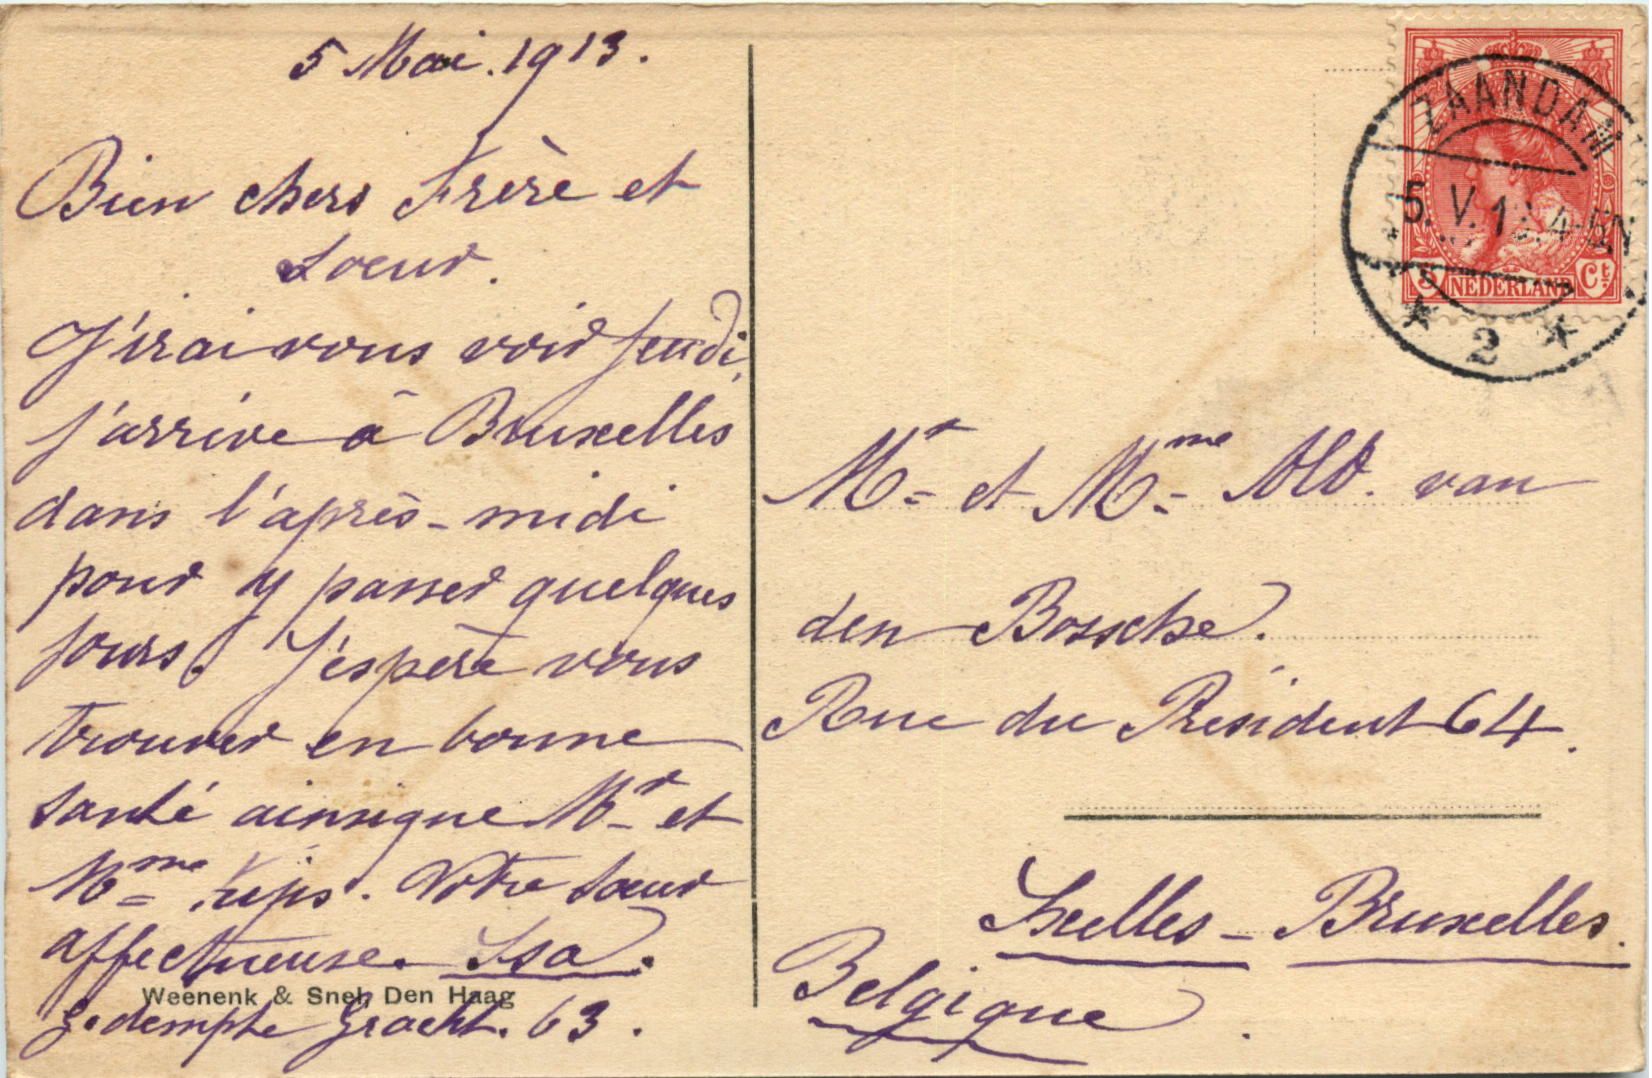 5 Mai. 1913.
Bien chers Frère et
Soeur.
J'irai vous voir Jeudi,
j'arrive à Bruxelles
dans l'après-midi
pour y passer quelques
jours. J'espère vous
trouver en bonne
santé ainsique Mr et
Mme. Votre soeur
affectueuse. Isa.
Weenenk & Snel, Den Haag
Gedempte Gracht. 63.
ZAANDAM
5. V. 13. 4-5N
2
5 NEDERLAND Ct
Mr et Mme Ald. van
den Bossche.
Rue du Président 64.
Ixelles - Bruxelles.
Belgique